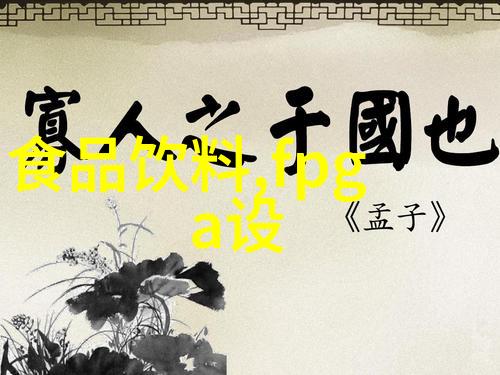 寡人之于國也
食品饮料,fpg
a设
《孟子》